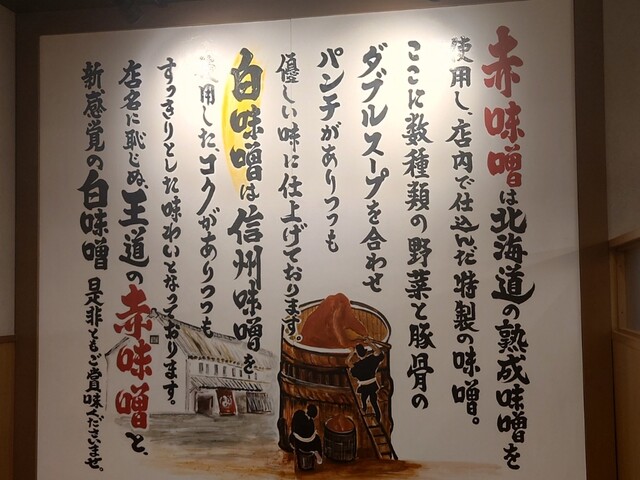 赤味噌は北海道の熟成味噌を
使用し、店内で仕込んだ特製の味噌。
ここに数種類の野菜と豚骨の
ダブルスープを合わせ
パンチがありつつも
優しい味に仕上げております。
白味噌は信州味噌を、
使用したコクがありつつも
すっきりとした味わいとなっております。
店名に恥じぬ、王道の赤味噌と、
新感覚の白味噌 是非ともご賞味くださいませ。